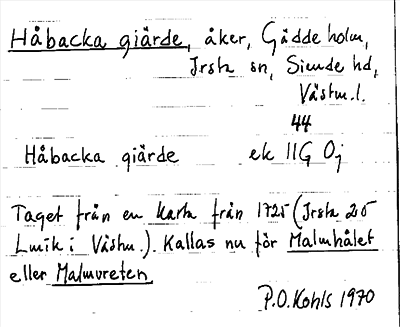 Håbacka giärde, åker, Gäddeholm,
Irsta sn, Siende hd,
Västm.l.
44
Håbacka giärde ek 11G 0j
Taget från en karta från 1725 (Irsta 25
Lmik i Västm.). Kallas nu för Malmhålet
eller Malmvreten
P.O. Kohls 1970